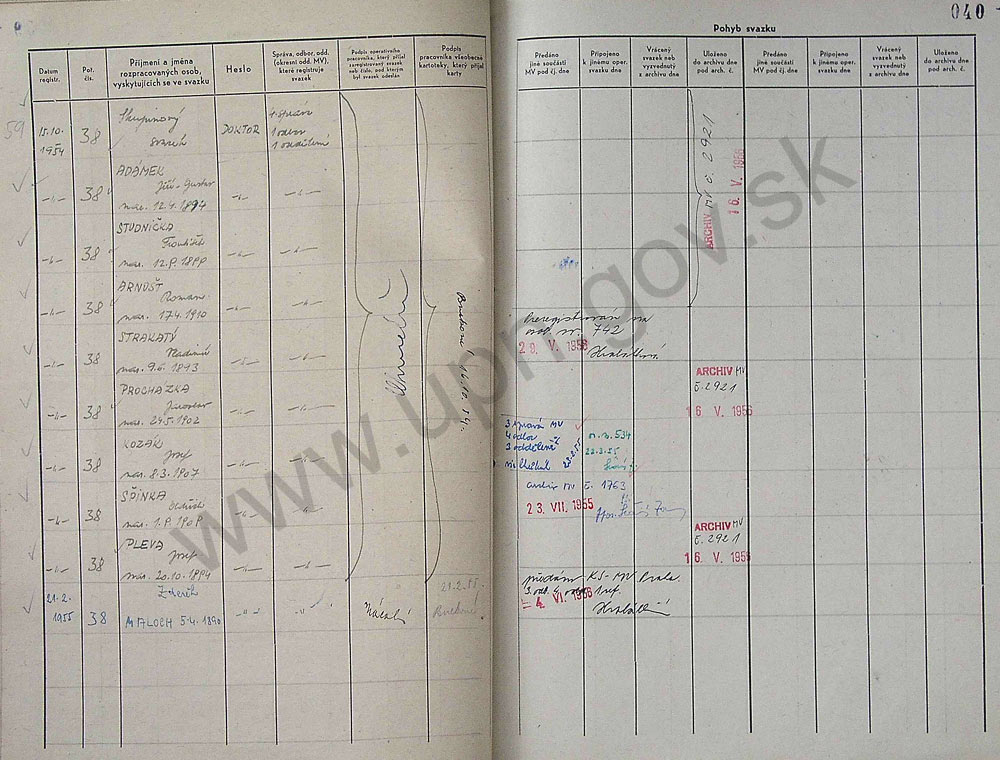 040
Pohyb svazku
Datum registr.
Poř. čís.
Příjmení a jména rozpracovaných osob, vyskytujících se ve svazku
Heslo
Správa, odbor, odd. (okresní odd. MV), které registruje svazek
Podpis operativního pracovníka, který přijal zaregistrovaný svazek neb číslo, pod kterým byl svazek odeslán
Podpis pracovníka všeobecné kartoteky, který přijal karty
Předáno jiné součásti MV pod čj. dne
Připojeno k jinému oper. svazku dne
Vrácený svazek neb vyzvednutý z archivu dne
Uloženo do archivu dne pod arch. č.
Předáno jiné součásti MV pod čj. dne
Připojeno k jinému oper. svazku dne
Vrácený svazek neb vyzvednutý z archivu dne
Uloženo do archivu dne pod arch. č.
59
15.10. 1954
38
Skupinový svazek
DOKTOR
4. správa
1 odbor
1 oddělení
ARCHIV MV č. 2921
16. V. 1956
-"- 38 ADÁMEK
Jiří - Gustav
nar. 12.4.1894 -"- -"-
-"- 38 STUDNIČKA
František
-"- -"-
-"- 38 ARNOŠT
Roman
nar. 17.4.1910 -"- -"-
přeregistrován na
742
-"- 38 STRAKATÝ
Vladimír
nar. 9.6.1893 -"- -"-
-"- 38 PROCHÁZKA
Jaroslav
nar. 24.5.1902 -"- -"-
ARCHIV MV
č. 2921
16 V. 1956
-"- 38 KOZÁK
Josef
nar. 8.3.1907 -"- -"-
3 správa MV
4 odbor
3 oddělení
534
22.3.55
archiv MV č. 1763
23. VII. 1955
-"- 38 ŠPINKA
Oldřich
-"- -"-
ARCHIV MV
č. 2921
16 V. 1956
-"- 38 PLEVA
Josef
nar. 20.10.1894 -"- -"-
14.10.54.
předáno KS-MV Praha
4. VI. 1956
21.2. 1955
38
Zdeněk
MALOCH 5.4.1890 -"- -"-
21.2.55.
www.upn.gov.sk